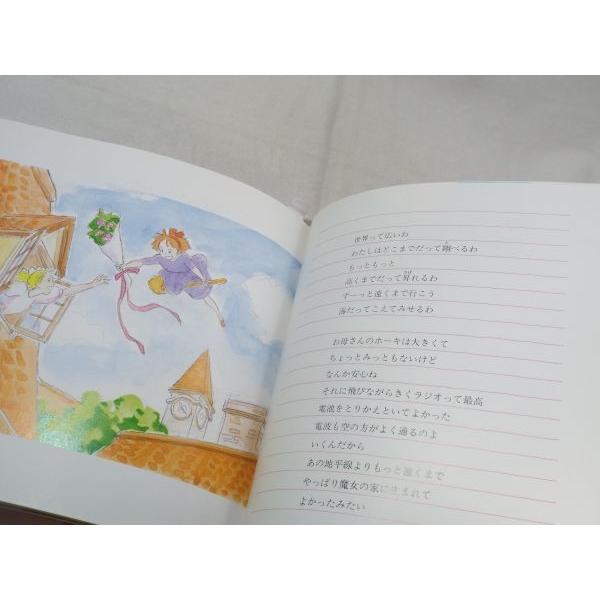 世界って広いわ
わたしはどこまでだって翔べるわ
もっともっと
高くまでだって昇れるわ
ずーっと遠くまで行こう
海だってこえてみせるわ
お母さんのホーキは大きくて
ちょっとみっともないけど
なんか安心ね
それに飛びながらきくラジオって最高
電池をとりかえといてよかった
電波も空の方がよく通るのよ
いくんだから
あの地平線よりもっと遠くまで
やっぱり魔女の家に生まれて
よかったみたい